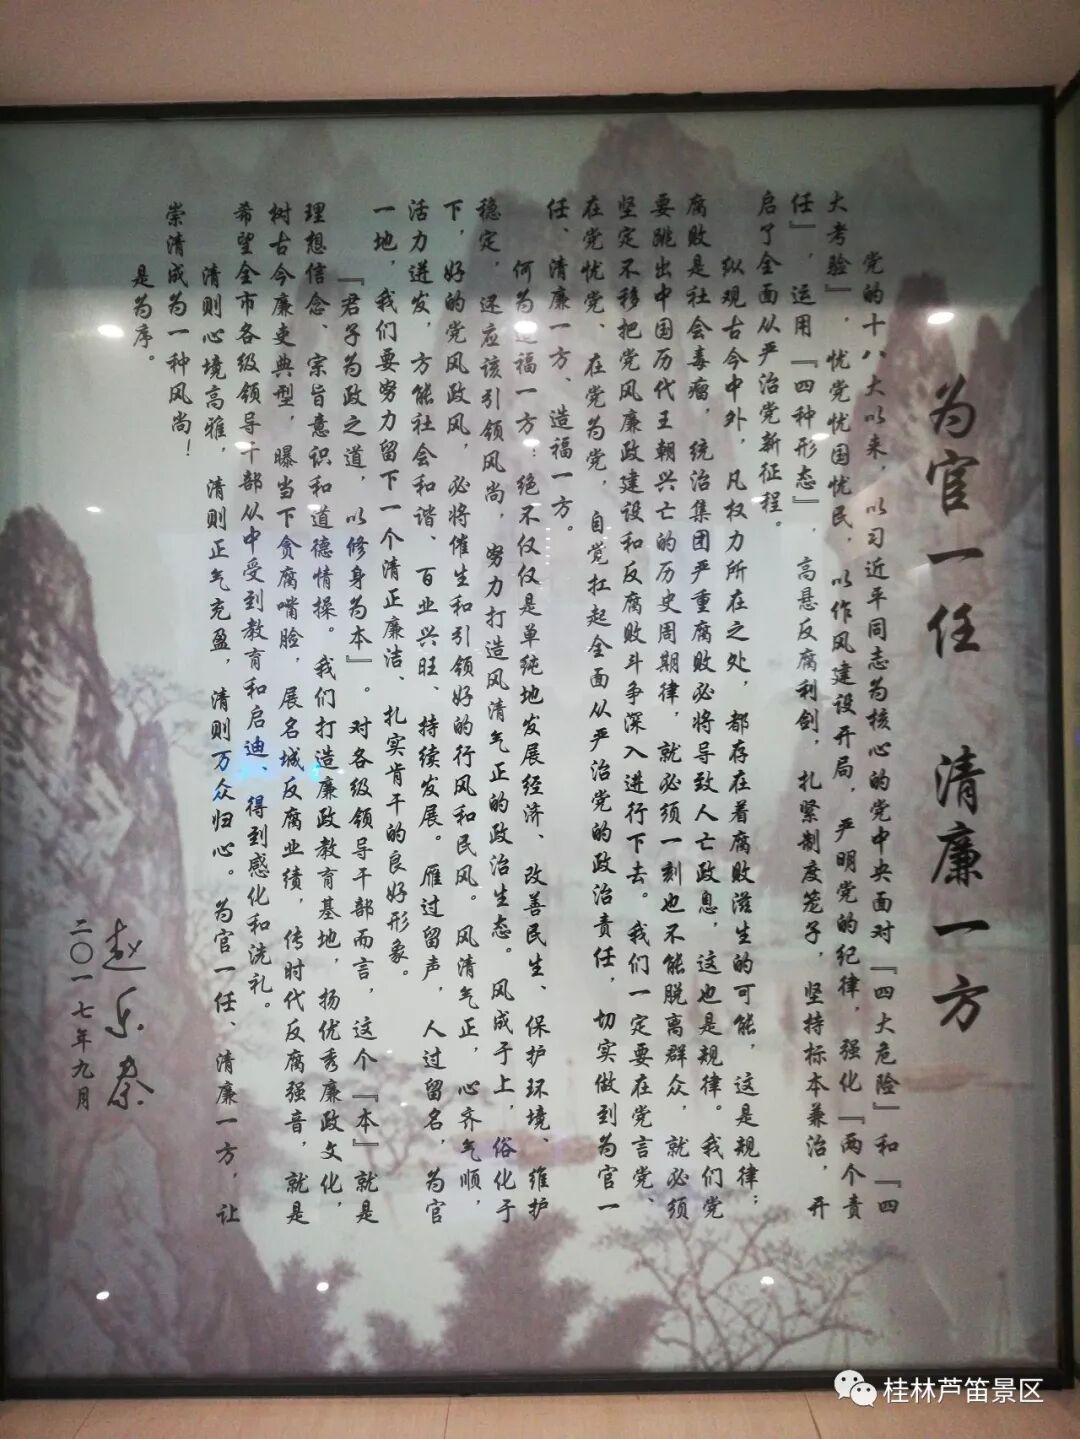 为官一任 清廉一方
党的十八大以来，以习近平同志为核心的党中央面对『四大危险』和『四
大考验』，忧党忧国忧民，以作风建设开局，严明党的纪律，强化『两个责
任』，运用『四种形态』，高悬反腐利剑，扎紧制度笼子，坚持标本兼治，开
启了全面从严治党新征程。
纵观古今中外，凡权力所在之处，都存在着腐败滋生的可能，这是规律；
腐败是社会毒瘤，统治集团严重腐败必将导致人亡政息，这也是规律。我们党
要跳出中国历代王朝兴亡的历史周期律，就必须一刻也不能脱离群众，就必须
坚定不移把党风廉政建设和反腐败斗争深入进行下去。我们一定要在党言党、
在党忧党、在党为党，自觉扛起全面从严治党的政治责任，切实做到为官一
任、清廉一方、造福一方。
何为造福一方：绝不仅仅是单纯地发展经济、改善民生、保护环境、维护
稳定，还应该引领风尚，努力打造风清气正的政治生态。风成于上，俗化于
下，好的党风政风，必将催生和引领好的行风和民风。风清气正，心齐气顺，
活力迸发，方能社会和谐、百业兴旺、持续发展。雁过留声，人过留名，为官
一地，我们要努力留下一个清正廉洁、扎实肯干的良好形象。
『君子为政之道，以修身为本』。对各级领导干部而言，这个『本』就是
理想信念、宗旨意识和道德情操。我们打造廉政教育基地，扬优秀廉政文化，
树古今廉吏典型，曝当下贪腐嘴脸，展名城反腐业绩，传时代反腐强音，就是
希望全市各级领导干部从中受到教育和启迪、得到感化和洗礼。
清则心境高雅，清则正气充盈，清则万众归心。为官一任、清廉一方，让
崇清成为一种风尚！
是为序。
赵乐秦
二〇一七年九月
桂林芦笛景区